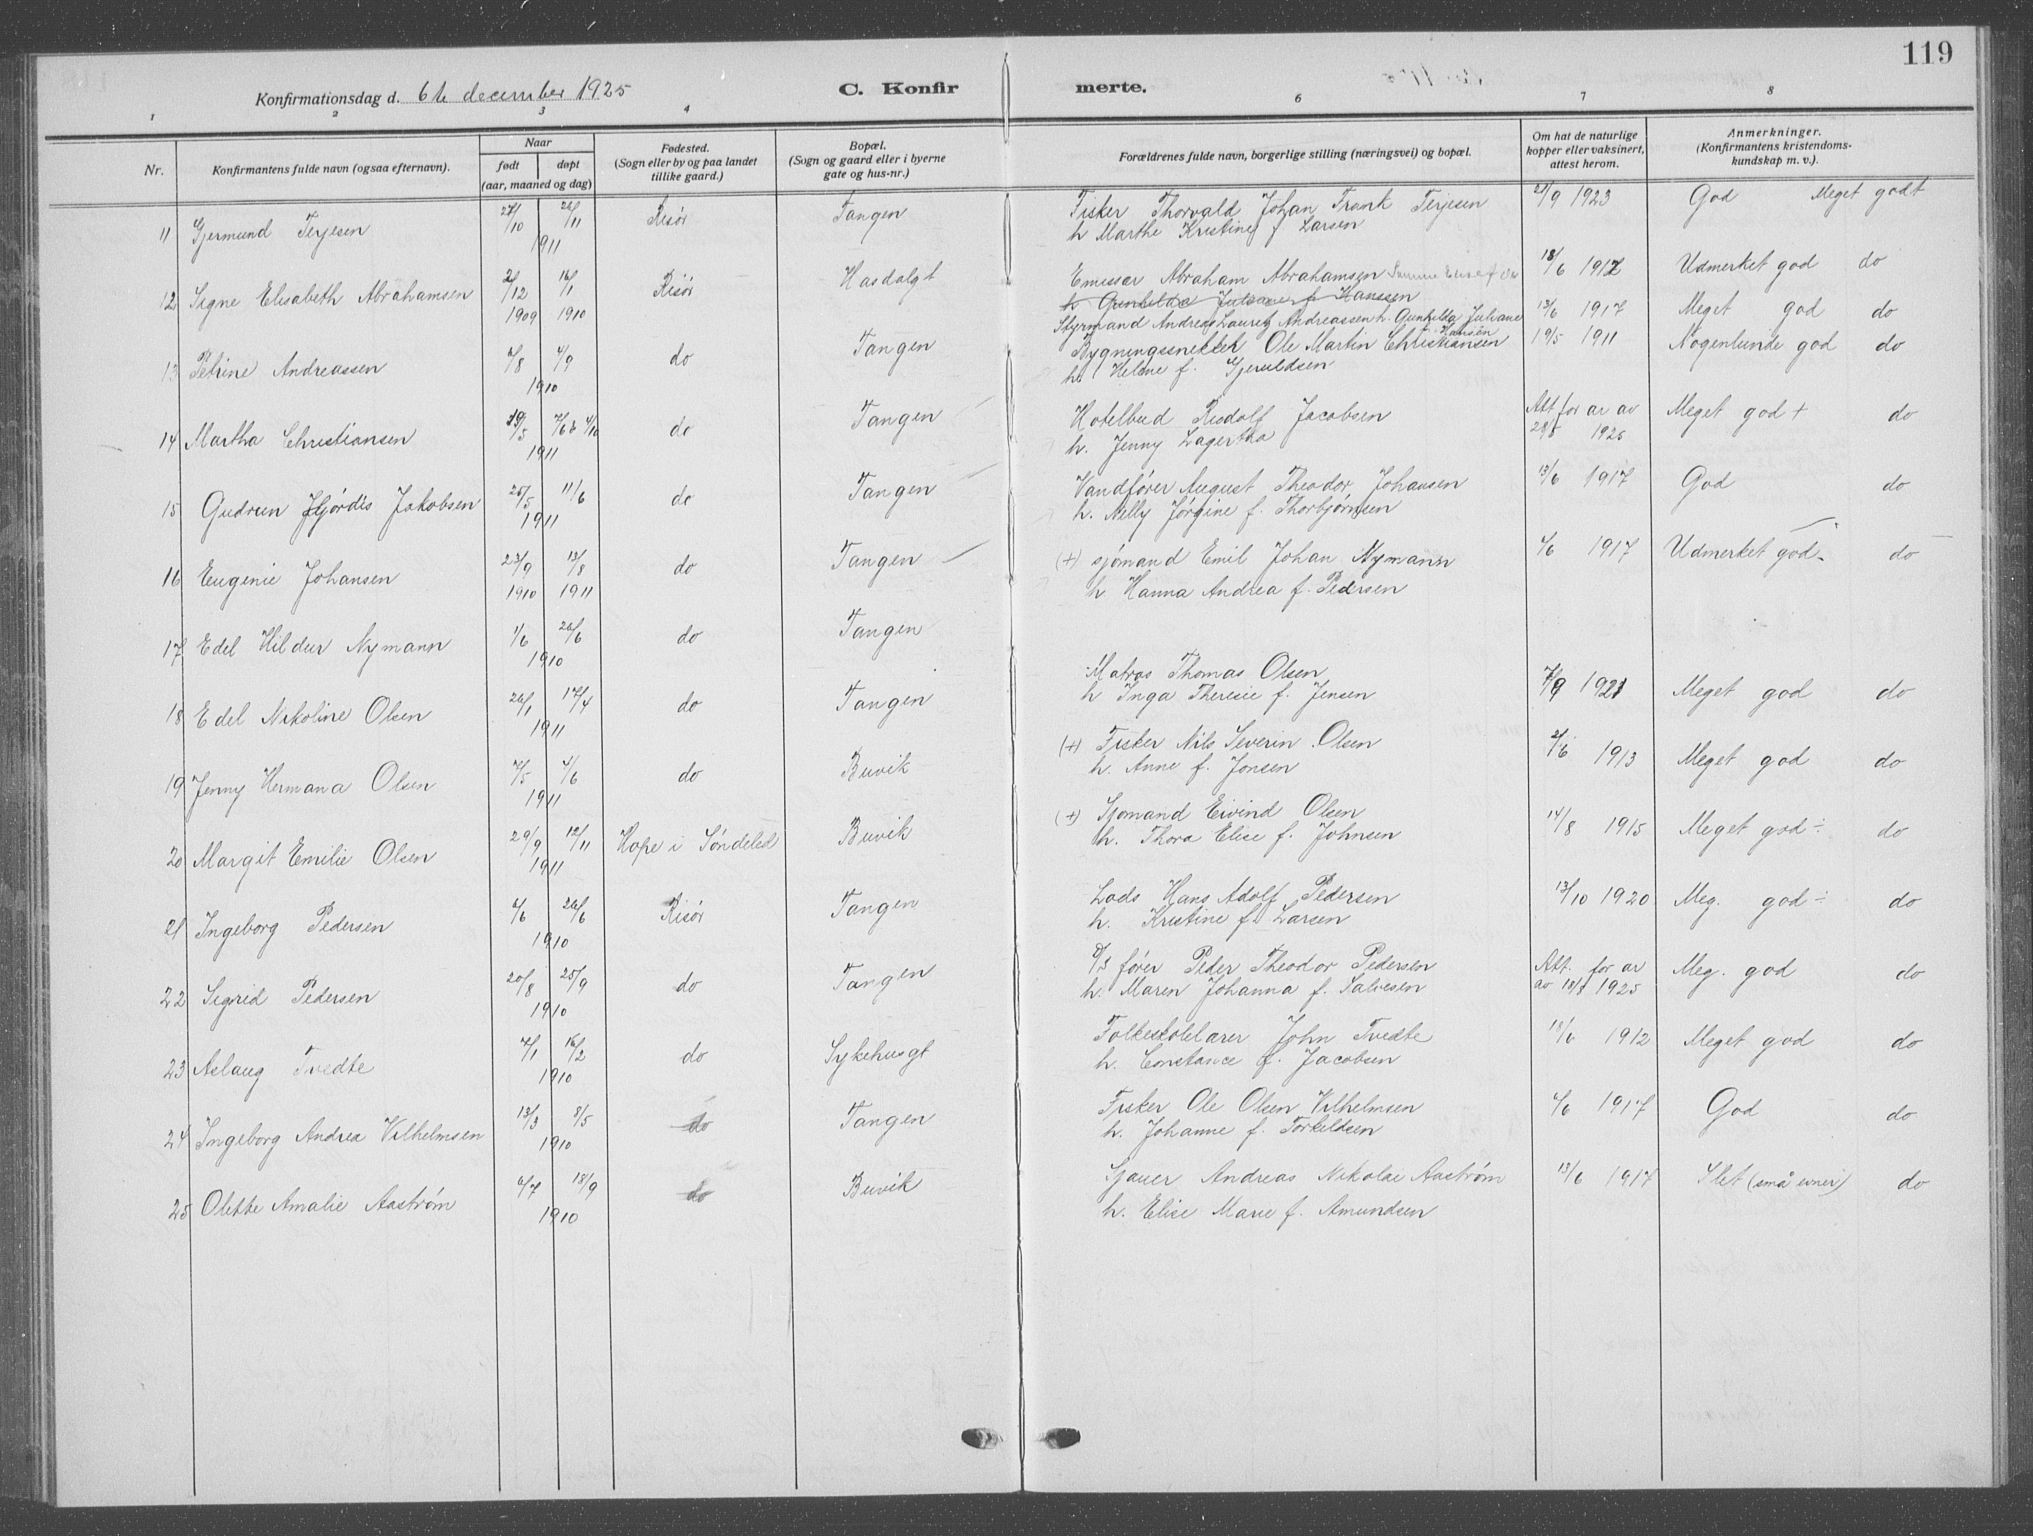 119
Konfirmationsdag d. 6te december 1925 C. Konfir merte.
1 2 3 4 6 7 8
Nr. Konfirmantens fulde navn (ogsaa efternavn). Naar født døpt (aar, maaned og dag) Fødested. (Sogn eller by og paa landet tillike gaard.) Bopæl. (Sogn og gaard eller i byerne gate og hus-nr.) Forældrenes fulde navn, borgerlige stilling (næringsvei) og bopæl. Om hat de naturlige kopper eller vaksinert, attest herom. Anmerkninger. (Konfirmantens kristendoms-kundskap m. v.).
11 Gjermund Terjesen 27/10 26/11 1911 Risör Tangen Fisker Thorvald Johan Frank Terjesen 21/9 1923 God Meget godt
h Marthe Kristine f Larsen
12 Signe Elisabeth Abrahamsen 2/12 1909 16/1 1910 Risör Hasdalgt Emissær Abraham Abrahamsen 18/6 1917 Udmerket god do
h Gunhilda Juliane f Hanssen
Styrmand Andreas Lauritz Andreassen h. Gunhilda Juliane f. Hansen 13/6 1917 Meget god do
13 Petrine Andreassen 7/8 4/9 1910 do Tangen
Bygningssnekker Ole Martin Christiansen 19/5 1911 Nogenlunde god do
h. Helene f. Gjeruldsen
14 Martha Christiansen 19/5 1911 do Tangen
Hotelbud Rudolf Jacobsen Att for ar av 29/5 1925 Meget god + do
h. Jenny Lagertha
15 Gudrun Hjördis Jakobsen 25/5 11/6 1911 do Tangen
Vandfører August Theodor Johansen 13/6 1917 God do
h. Nelly Jørgine f. Thorbjørnsen
16 Eugenie Johansen 23/9 1910 13/8 1911 do Tangen
(+) sjømand Emil Johan Nymann 4/6 1917 Udmerket god - do
h. Hanna Andrea f. Pedersen
17 Edel Hildur Nymann 1/6 26/6 1910 do Tangen
Matros Thomas Olsen 7/9 1921 Meget god do
h Inga Theresie f. Jensen
18 Edel Nikoline Olsen 26/1 17/4 1911 do Tangen
(+) Fisker Nils Severin Olsen 21/6 1913 Meget god do
h. Anne f. Jonsen
19 Jenny Hermana Olsen 7/5 4/6 1911 do Buvik
(+) Sjømand Eivind Olsen 14/8 1915 Meget god ÷ do
h. Thora Elise f. Johnsen
20 Margit Emilie Olsen 29/9 12/11 1911 Hope i Søndeled Buvik
Lods Hans Adolf Pedersen 13/10 1920 Meg. god ÷ do
h. Kristine f. Larsen
21 Ingeborg Pedersen 4/6 26/6 1910 Risör Tangen
D/S fører Peder Theodor Pedersen Att. for ar av 18/8 1925 Meg. god do
h. Maren Johanna f. Salvesen
22 Sigrid Pedersen 20/8 25/9 1910 do Tangen
Folkeskolelærer John Tvedte 18/6 1912 Meget god do
h. Constance f. Jacobsen
23 Aslaug Tvedte 7/1 16/2 1910 do Sykehusgt
Fisker Ole Olsen Vilhelmsen 4/6 1917 God do
h. Johanne f. Torkildsen
24 Ingeborg Andrea Vilhelmsen 13/3 8/5 1910 do Tangen
Sjauer Andreas Nikolai Aastrøm 13/6 1917 Slet (små evner) do
h. Elise Marie f. Amundsen
25 Olette Amalie Aastrøm 6/7 18/9 1910 do Buvik